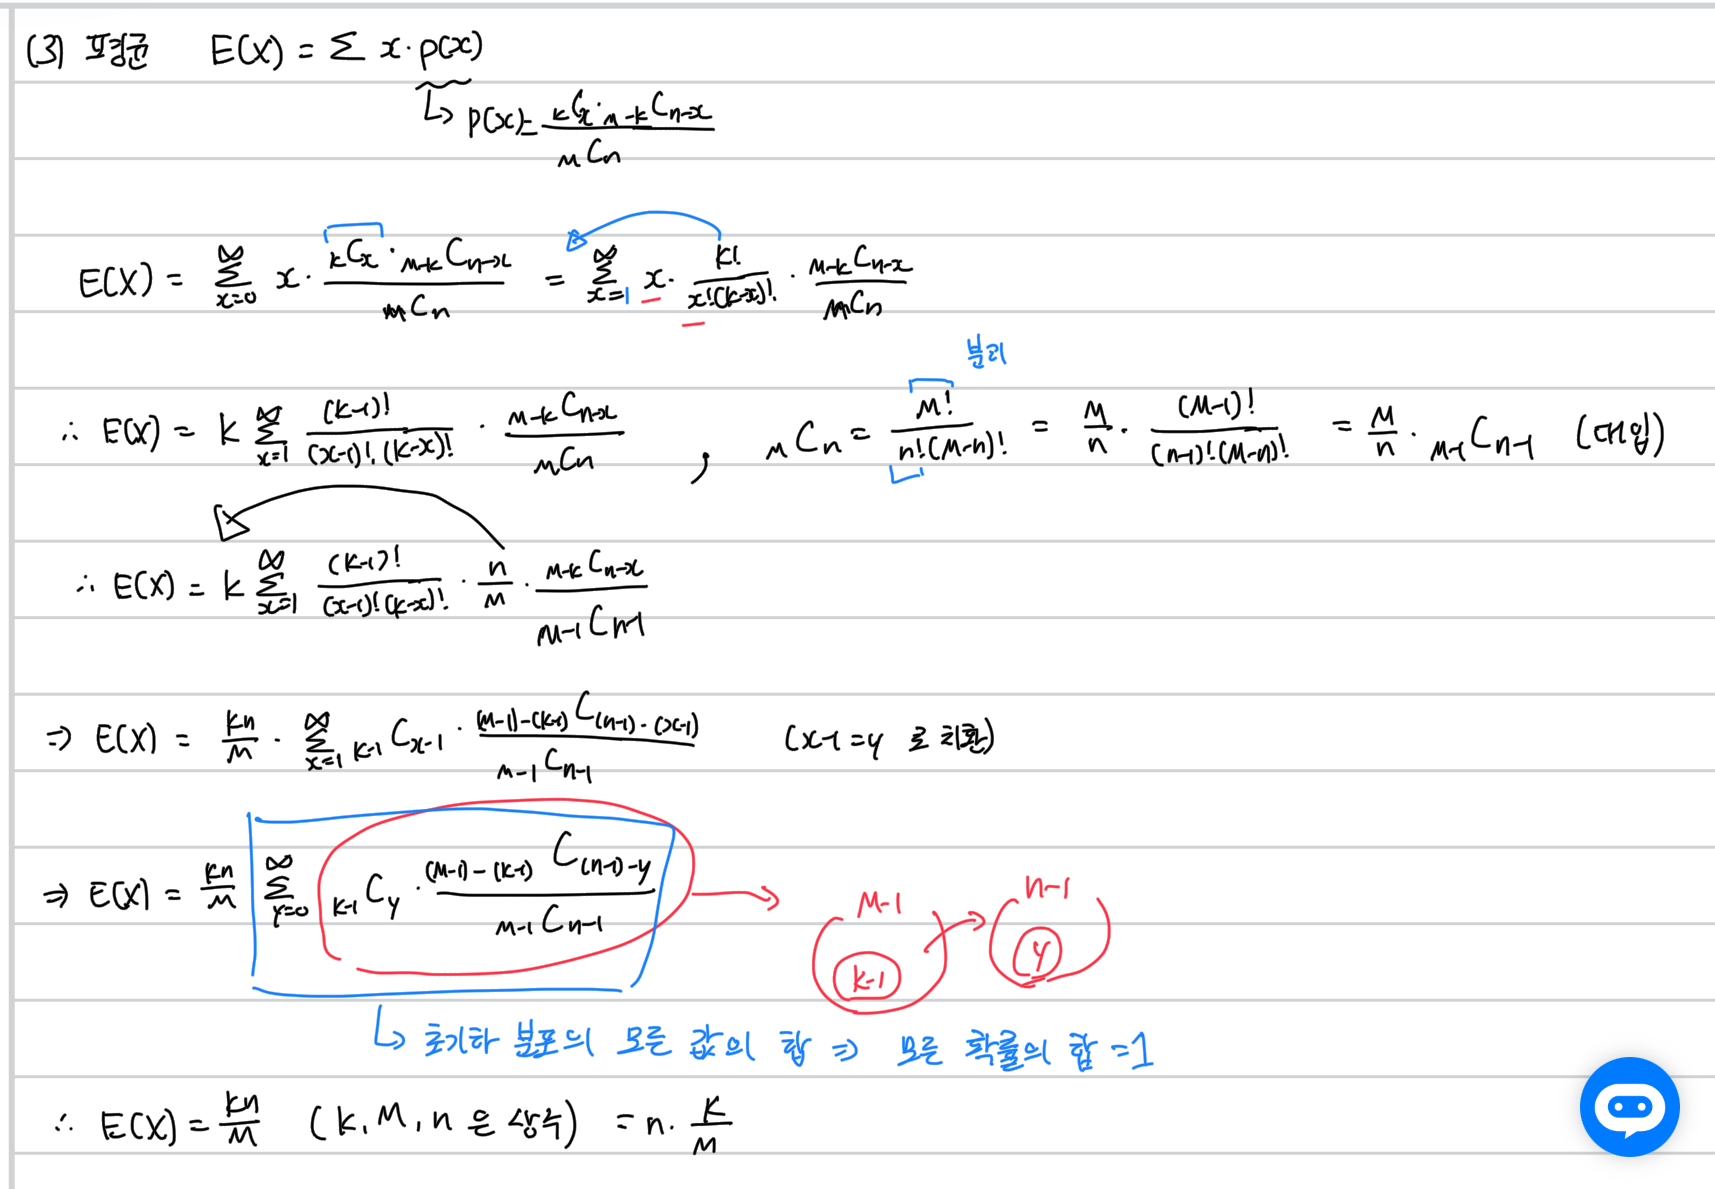 (3) 평균 E(X) = Σ x·p(x)
↳ p(x) = kCx · M-kCn-x / MCn
E(X) = Σ_{x=0}^{∞} x · kCx · M-kCn-x / MCn = Σ_{x=1}^{∞} x · k! / x!(k-x)! · M-kCn-x / MCn
분리
∴ E(X) = k Σ_{x=1}^{∞} (k-1)! / (x-1)!·(k-x)! · M-kCn-x / MCn , MCn = M! / n!(M-n)! = M/n · (M-1)! / (n-1)!(M-n)! = M/n · M-1Cn-1 (대입)
∴ E(X) = k Σ_{x=1}^{∞} (k-1)! / (x-1)!(k-x)! · n/M · M-kCn-x / M-1Cn-1
⇒ E(X) = kn/M · Σ_{x=1}^{∞} k-1Cx-1 · (M-1)-(k-1)C(n-1)-(x-1) / M-1Cn-1 (x-1=y 로 치환)
⇒ E(X) = kn/M Σ_{y=0}^{∞} k-1Cy · (M-1)-(k-1)C(n-1)-y / M-1Cn-1
M-1 n-1
k-1 y
↳ 초기하 분포의 모든 값의 합 ⇒ 모든 확률의 합 = 1
∴ E(X) = kn/M (k, M, n 은 상수) = n · k/M